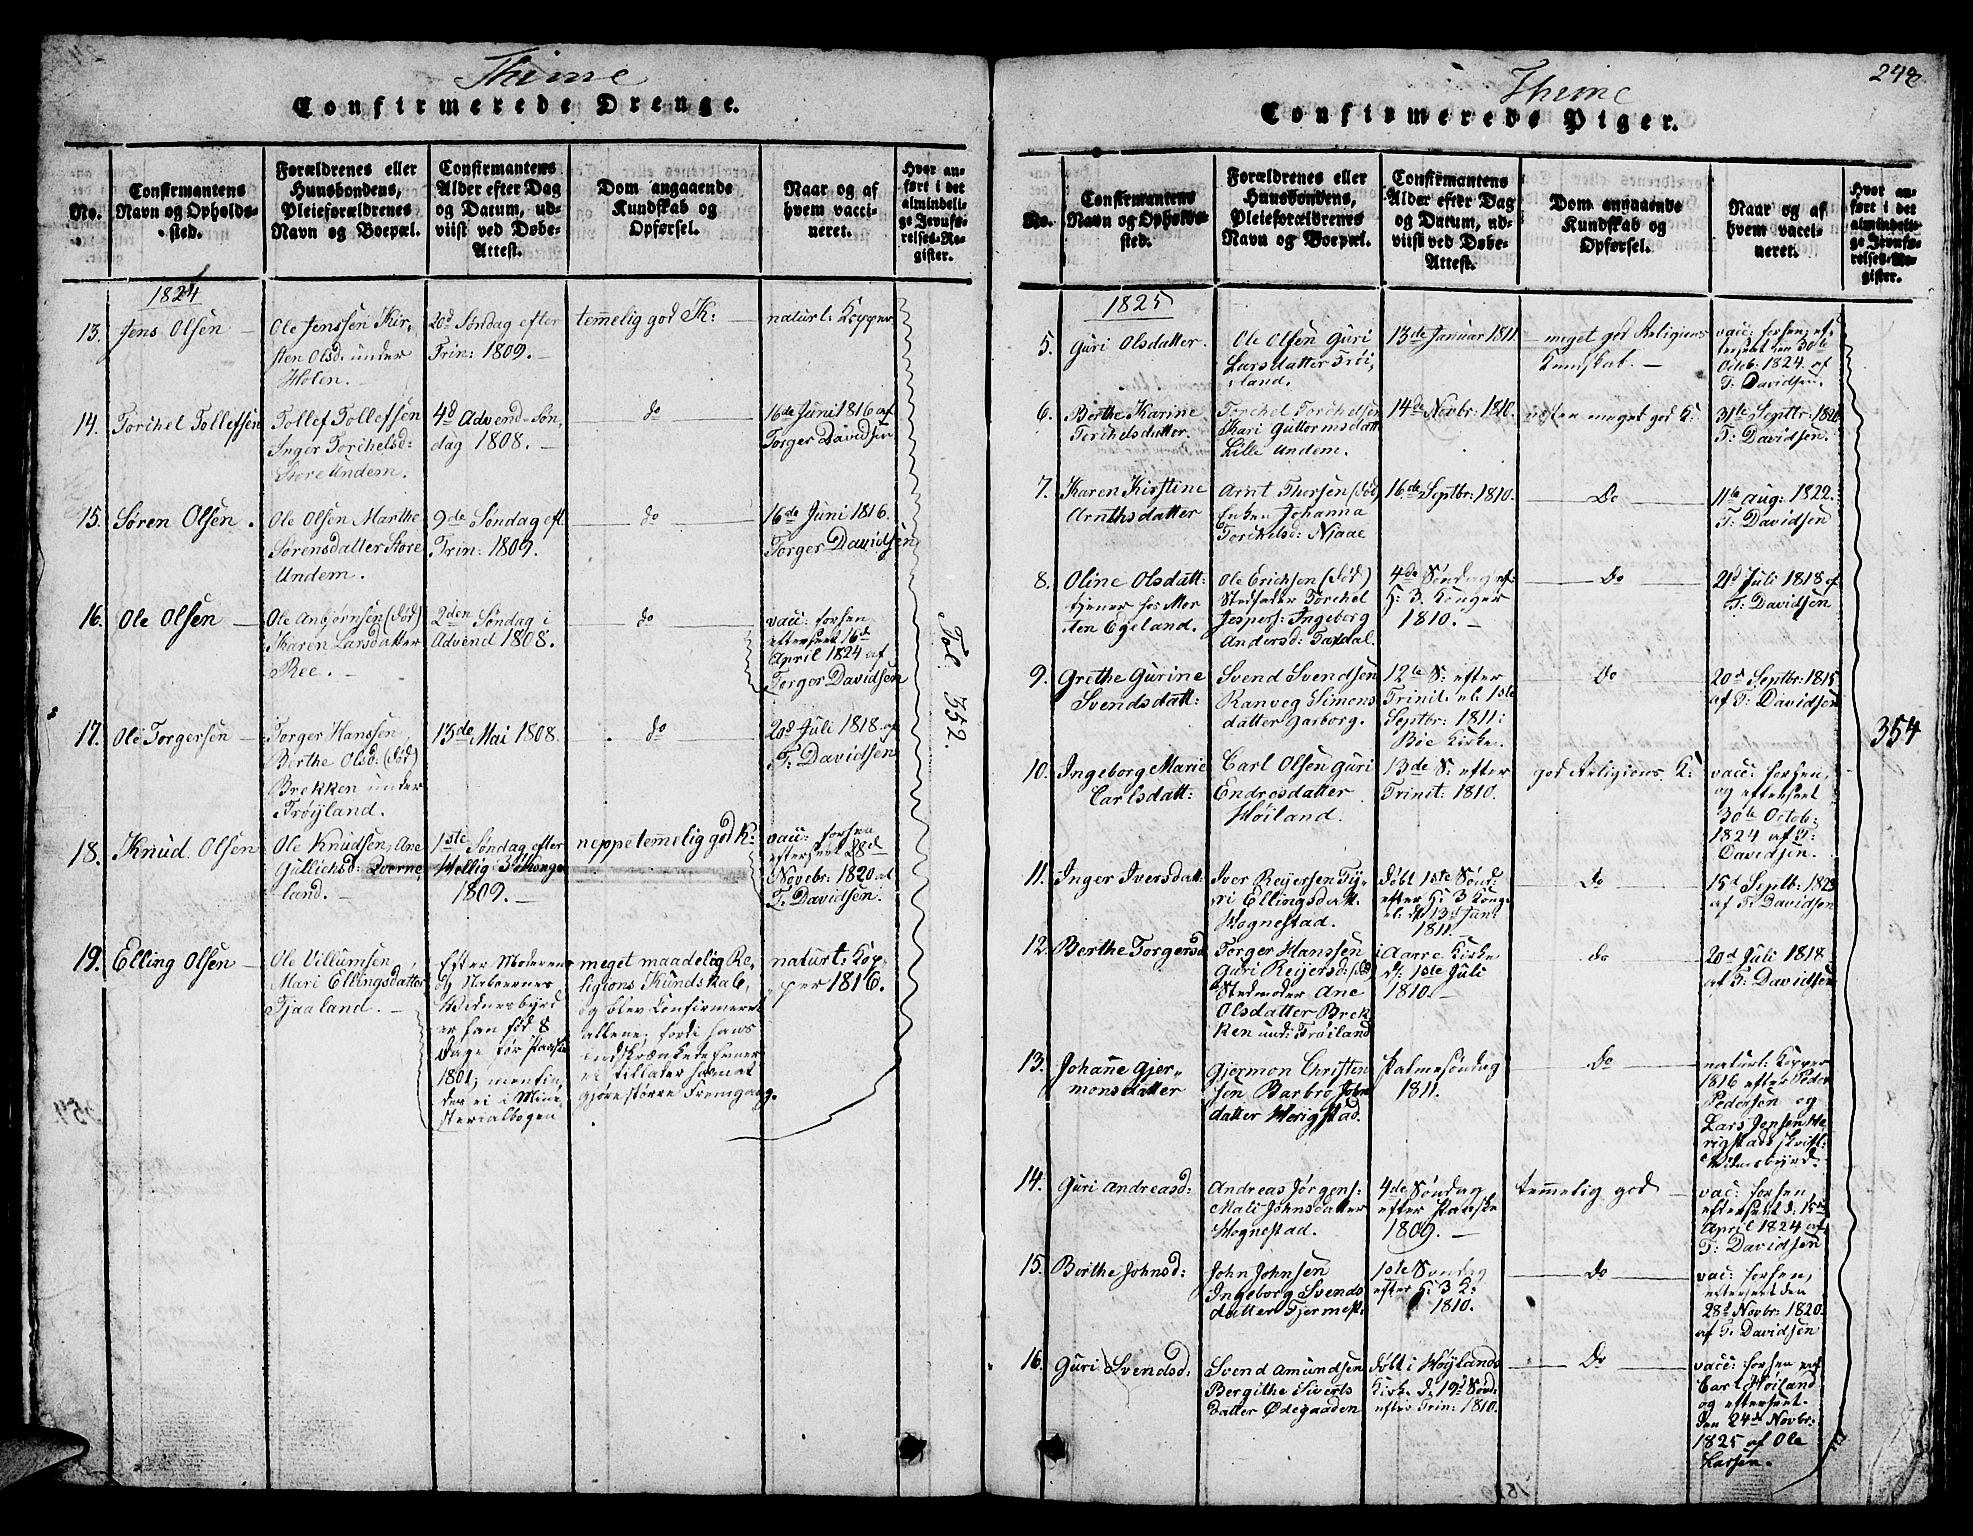 Thime
Confirmerede Drenge.
No.
Confirmantens
Navn og Opholds-
sted.
Forældrenes eller
Huusbondens,
Pleieforældrenes
Navn og Boepæl.
Confirmantens
Alder efter Dag
og Datum, ud-
viist ved Døbe-
Attest.
Dom angaaende
Kundskab og
Opførsel.
Naar og af
hvem vacci-
neret.
Hvor an-
ført i det
almindeli-
ge Jevnfø-
relses-Re-
gister.
1824
13. Jens Olsen
Ole Jenssen Kir-
sten Olsd: under
Holen.
20d Søndag efter
Trin: 1809.
temelig god K:
naturl: Kopper
14. Torchel Tollefsen
Tollef Tollefsen
Inger Torchelsd:
Store Undem.
4d Advend-Søn,
dag 1808.
do
16de Juni 1816 af
Torger Davidsen
15. Søren Olsen.
Ole Olsen Marthe
Sørensdatter Store
Undem.
9de Søndag eft.
Trin: 1809.
do
16de Juni 1816.
Torger Davidsen
16. Ole Olsen
Ole Anbjørnsen (død)
Karen Larsdatter
Ree.
2den Søndag i
Advend 1808.
do
vacc: forhen
efterseet 16d
April 1824 af
Torger Davidsen
17. Ole Torgersen
Torger Hanssen,
Berthe Olsd: (død)
Brekken under
Trøyland.
13de Mai 1808.
do
20d Juli 1818 af
T: Davidsen
18. Knud Olsen
Ole Knudsen, Ane
Gullichsd: Qverne,
land.
1ste Søndag efter
Hellig 3 Konge
1809.
neppe temelig god K:
vacc: forhen
efterseet 28d
Novbr: 1820 af
T: Davidsen.
19. Elling Olsen
Ole Villumsen,
Mari Ellingsdatter
Tjaaland.
Efter Moderens
og Naboernes
Vidnesbyrd
er han fød 8
Dage før Paaske
1801; men fin,
des ei i Mini-
sterialbogen
meget maadelig Re-
ligions Kundskab,
og blev Confirmeret
allene, fordi hans
indskrænkede Evner
ei tillader ham at
gjøre større Fremgang.
naturl: Kop-
per 1816.
Fol. 352.
248
Thime
Confirmerede Piger.
No.
Confirmantens
Navn og Opholds-
sted.
Forældrenes eller
Huusbondens,
Pleieforældrenes
Navn og Boepæl.
Confirmantens
Alder efter Dag
og Datum, ud-
viist ved Døbe-
Attest.
Dom angaaende
Kundskab og
Opførsel.
Naar og af
hvem vacci-
neret.
Hvor an-
ført i det
almindeli-
ge Jevnfø-
relses-Re-
gister.
1825
5. Guri Olsdatter.
Ole Olsen Guri
Larsdatter Trøi,
land.
13de Januar 1811
meget god Religions
Kunskab.
vacc: forhen, ef-
terseet den 30te
Octob: 1824 af
T: Davidsen.
6. Berthe Karine
Torchelsdatter.
Torchel Torchelsen
Kari Guttormsdatt:
Lille Undem.
14de Novbr: 1810.
næsten meget god K:
31te Septbr: 1820
T: Davidsen.
7. Karen Kirstine
Arnthsdatter
Arnt Thorsen (død)
Enken Johanna
Torchelsd: Njaae
16de Septbr: 1810.
Do
11te aug: 1822.
T: Davidsen
8. Oline Olsdatt:
tjener hos Mor
ten Egeland.
Ole Ericksen (død)
Stedfader Torchel
Jespers: Ingeborg
Andersd: Taxdal.
4de Søndag ef:
H: 3. Konger
1810.
Do
21d Juli 1818 af
T: Davidsen
9. Grethe Gurine
Svendsdatt:
Svend Svendsen
Ranveg Simons
datter Garborg.
12te S: efter
Trinit: el: 1ste
Septbr: 1811 i
Bøe Kirke.
Do
20d Septbr: 1815
af T: Davidsen
354
10. Ingeborg Marie
Carlsdatt:
Carl Olsen Guri
Endresdatter
Høiland.
13de S: efter
Trinit: 1810.
god Religions K:
vacc: forhen,
og efterseet
30te Octob:
1824 af T:
Davidsen.
11. Inger Iversdatt:
Iver Reijersen Gy-
ri Ellingsdatt.
Hognestad.
døbt 1ste Sønd:
efter H: 3 Kong
el: d: 13d Jan:
1811.
Do
15d Septb: 1823
af T: Davidsen
12. Berthe Torgersd
Torger Hanssen
Guri Reijersd: (død)
Stedmoder Ane
Olsdatter Brek
ken und: Trøiland
i Aarre Kirke
d: 1ste Juli
1810.
do
20d Juli 1818
af T: Davidsen
13. Johane Gjer-
monsdatter
Gjermon Christen
sen Barbro John
datter Herigstad.
Palmesøndag
1811.
Do
naturl: Kopper
1816 efter Peder
Pedersen og
Lars Jensen He,
rigstads skrift:
Vidnesbyrd.
14. Guri Andreasd:
Andreas Jørgens:
Mali Johnsdatter
Hognestad.
4de Søndag
efter Paaske
1809.
temelig god
vac: forhen,
efterseet d: 15de
April 1824 af
T: Davidsen
15. Berthe Johnsd:
John Johnsen
Ingeborg Svends
datter Tjermest:
1ste Søndag
efter H: 3 K:
1810.
Do
vac: forhen,
efterseet den
28d Novbr: 1820.
af T: Davidsen
16. Guri Svendsd:
Svend Amundsen
Bergithe Siverts
datter Ødegaaden
døbt i Høylands
Kirke d: 19d Sønd:
efter Trin: 1810.
Do
vacc: forhen ved
Carl Høiland
og efterseet
den 24de Novbr:
1825 af Ole
Larsen.